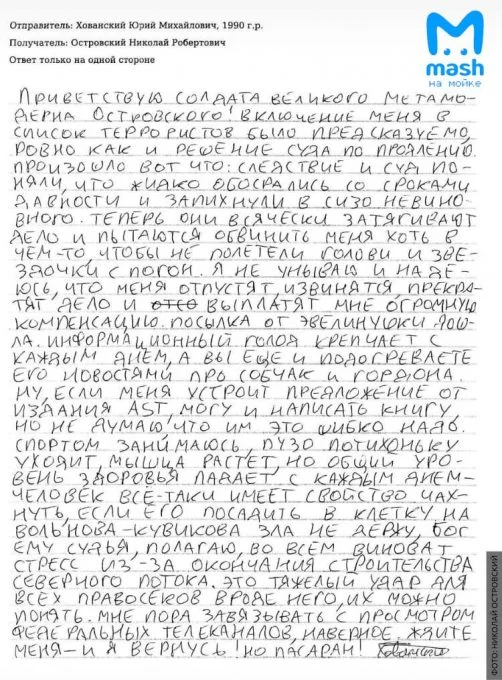 Отправитель: Хованский Юрий Михайлович, 1990 г.р.
Получатель: Островский Николай Робертович
Ответ только на одной стороне
mash
на мойке
ПРИВЕТСТВУЮ СОЛДАТА ВЕЛИКОГО МЕТАМО-
ДЕРНА ОСТРОВСКОГО! ВКЛЮЧЕНИЕ МЕНЯ В
СПИСОК ТЕРРОРИСТОВ БЫЛО ПРЕДСКАЗУЕМО,
РОВНО КАК И РЕШЕНИЕ СУДА ПО ПРОДЛЕНИЮ.
ПРОИЗОШЛО ВОТ ЧТО: СЛЕДСТВИЕ И СУД ПО-
НЯЛИ, ЧТО ЖИДКО ОБОСРАЛИСЬ СО СРОКАМИ
ДАВНОСТИ И ЗАПИХНУЛИ В СИЗО НЕВИНО-
ВНОГО. ТЕПЕРЬ ОНИ ВСЯЧЕСКИ ЗАТЯГИВАЮТ
ДЕЛО И ПЫТАЮТСЯ ОБВИНИТЬ МЕНЯ ХОТЬ В
ЧЕМ-ТО, ЧТОБЫ НЕ ПОЛЕТЕЛИ ГОЛОВЫ И ЗВЕ-
ЗДОЧКИ С ПОГОН. Я НЕ УНЫВАЮ И НАДЕ-
ЮСЬ, ЧТО МЕНЯ ОТПУСТЯТ, ИЗВИНЯТСЯ, ПРЕКРА-
ТЯТ ДЕЛО И ВЫПЛАТЯТ МНЕ ОГРОМНУЮ
КОМПЕНСАЦИЮ. ПОСЫЛКА ОТ ЭВЕЛИНУШКИ ДОШ-
ЛА. ИНФОРМАЦИОННЫЙ ГОЛОД КРЕПЧАЕТ С
КАЖДЫМ ДНЕМ, А ВЫ ЕЩЕ И ПОДОГРЕВАЕТЕ
ЕГО НОВОСТЯМИ ПРО СОБЧАК И ГОРДОНА.
НУ, ЕСЛИ МЕНЯ УСТРОИТ ПРЕДЛОЖЕНИЕ ОТ
ИЗДАНИЯ AST, МОГУ И НАПИСАТЬ КНИГУ,
НО НЕ ДУМАЮ, ЧТО ИМ ЭТО ШИБКО НАДО.
СПОРТОМ ЗАНИМАЮСЬ, ПУЗО ПОТИХОНЬКУ
УХОДИТ, МЫШЦА РАСТЕТ, НО ОБЩИЙ УРО-
ВЕНЬ ЗДОРОВЬЯ ПАДАЕТ С КАЖДЫМ ДНЕМ-
ЧЕЛОВЕК ВСЕ-ТАКИ ИМЕЕТ СВОЙСТВО ЧАХ-
НУТЬ, ЕСЛИ ЕГО ПОСАДИТЬ В КЛЕТКУ НА
ВОЛЬНОВА-КУВИКОВА ЗЛА НЕ ДЕРЖУ, БОГ
ЕМУ СУДЬЯ, ПОЛАГАЮ, ВО ВСЕМ ВИНОВАТ
СТРЕСС ИЗ-ЗА ОКОНЧАНИЯ СТРОИТЕЛЬСТВА
СЕВЕРНОГО ПОТОКА. ЭТО ТЯЖЕЛЫЙ УДАР ДЛЯ
ВСЕХ ПРАВОСЕКОВ ВРОДЕ НЕГО, ИХ МОЖНО
ПОНЯТЬ. МНЕ ПОРА ЗАВЯЗЫВАТЬ С ПРОСМОТРОМ
ФЕДЕРАЛЬНЫХ ТЕЛЕКАНАЛОВ, НАВЕРНОЕ. ЖДИТЕ
МЕНЯ-И Я ВЕРНУСЬ! НО ПАСАРАН!
ФОТО: НИКОЛАЙ ОСТРОВСКИЙ